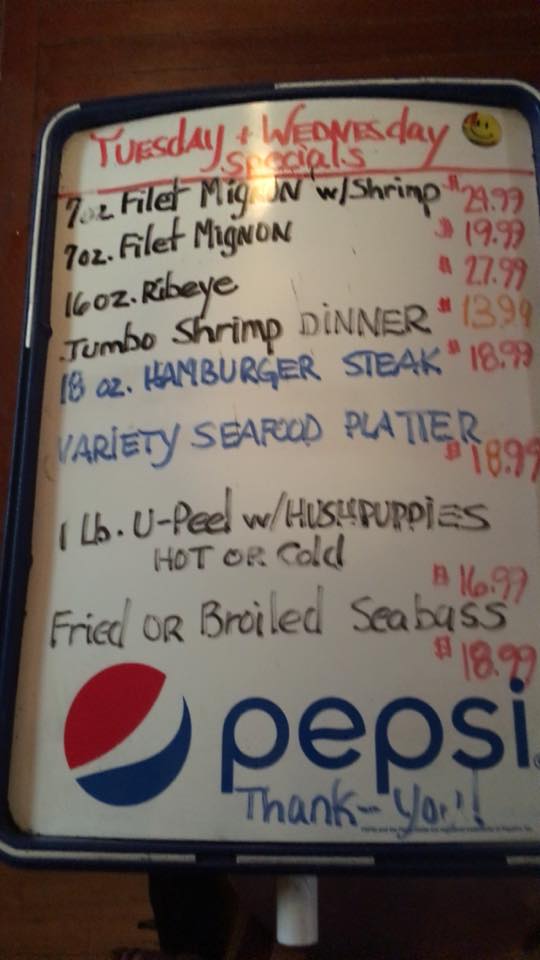 TUESDAY + WEDNESday
specials
7oz Filet MIGNON w/Shrimp $29.99
7oz. Filet MIGNON $19.99
16oz. Ribeye $27.99
Jumbo Shrimp DINNER $13.99
18 oz. HAMBURGER STEAK $18.99
VARIETY SEAFOOD PLATTER
$18.99
1 Lb. U-Peel w/HUSHPUPPiES
HOT OR Cold
$16.99
Fried OR Broiled Seabass
$18.99
pepsi
Thank-You!!